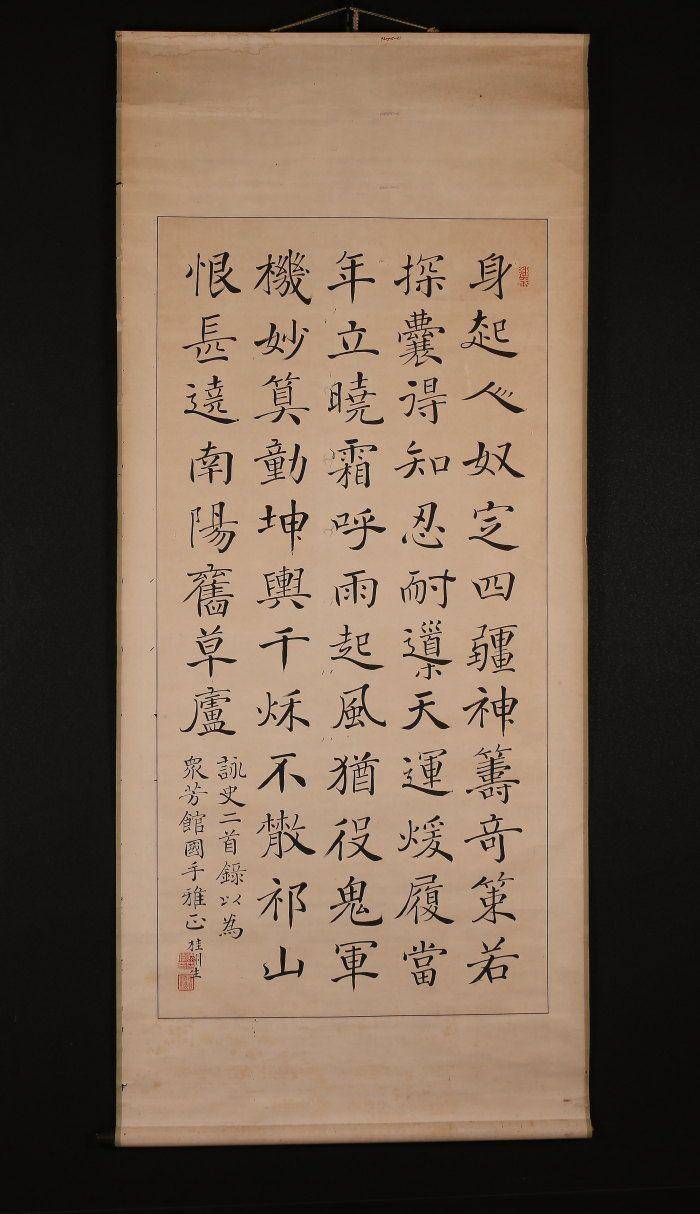 身起人奴定四疆神籌奇策若
探囊得知忍耐天運煖履當
年立曉霜呼雨起風猶役鬼軍
機妙算動坤輿千秋不散祁山
恨長遶南陽舊草廬
詠史二首錄以為
眾芳館國手雅正
桂生